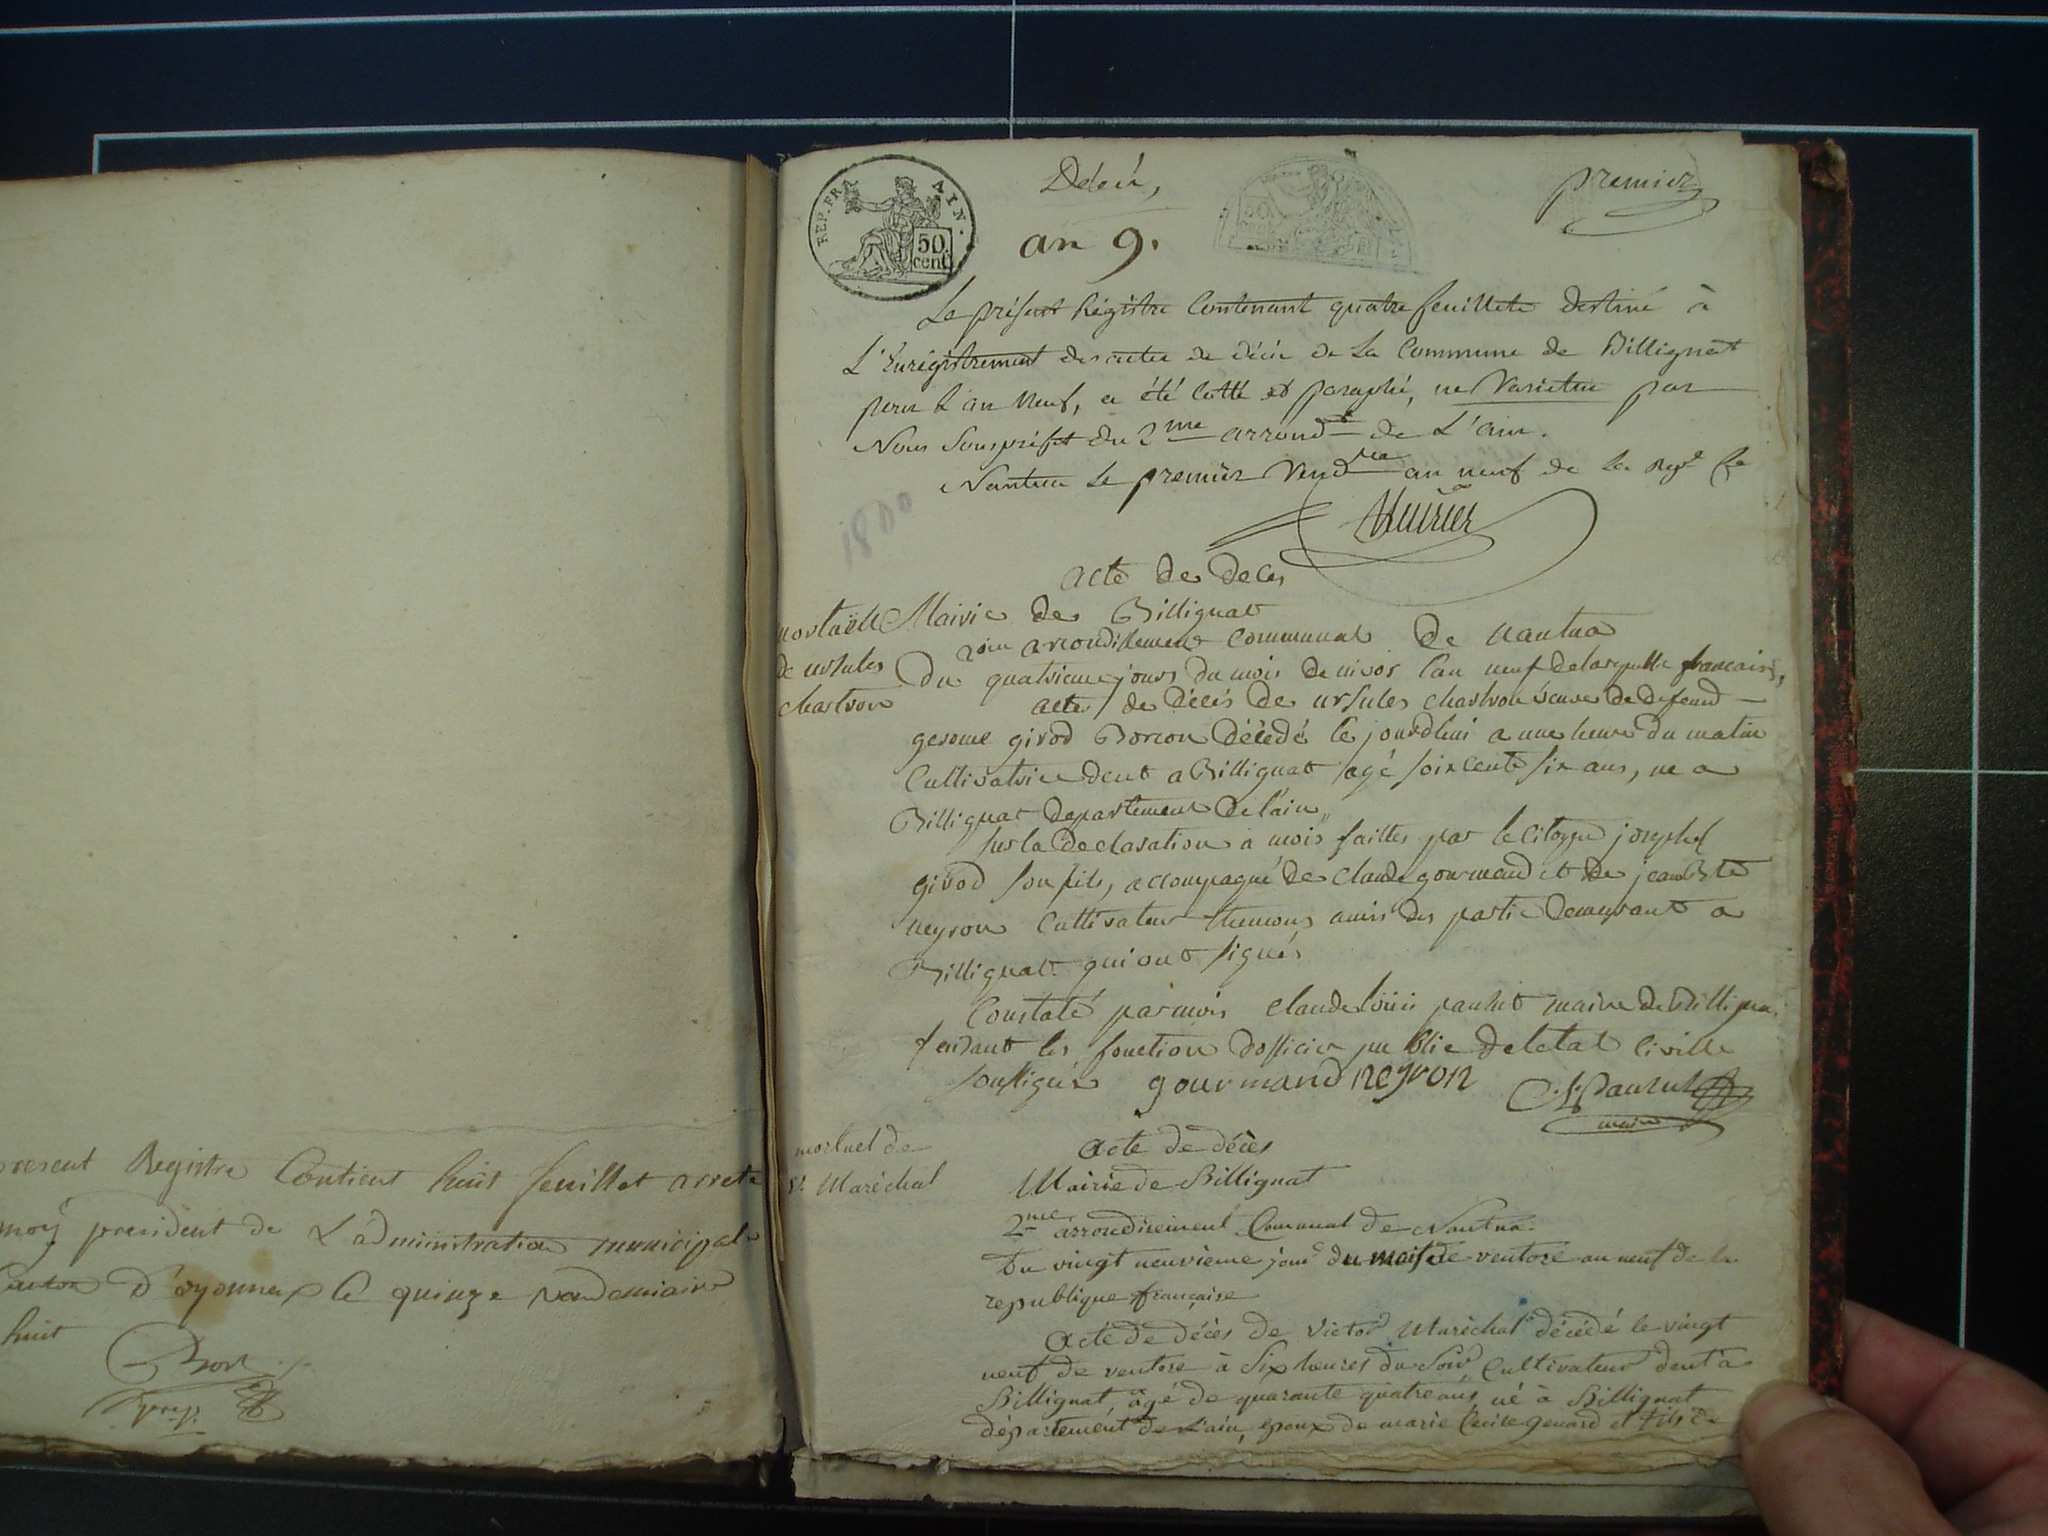 present Registre Contient huit feuillet arrete
moy president de L'administration municipale
canton d'oyonnax le quinze vendemiaire
huit
REP. FRA. AIN.
50
cent.
Décès,
premier
an 9.
Le présent Régistre Contenant quatre feuillets destiné à
L'Enregistrement des actes de décès de la Commune de Billignat
pour l'an Neuf, a été cotté et paraphé, ne Varietur par
Nous Souspréfet du 2me arrondt de L'ain.
Nantua le premier Vendre an neuf de la Rep.e fe
1800
acte de deces
Mairie de Billignat
mortaëlle
de ursules
chastron
2ème arrondissement communal de nantua
Du quatrieme jours du mois de nivos l'an neuf de la repulle francaise,
acte de décés de ursules chastron veuve de defeund
gerome girod Borron décédé le jourdhui a une heure du matin
cultivatrice demt a Billignat agé soixcente six ans, ne a
Billignat departement de l'ain,,
sur la declaration a mois faittes par le citoyen joseph
girod son fils, accompagné de claude gourmand et de jean Bte
neyron Cultivateur themons amis des partie demeurant a
Billignat qui ont signés
Constaté par mois claude louis maire de Billigna
fesant les fonction d'officier publie de letat civille
soussignés gourmand neyron
maire
mortuel de
Vr Maréchal
Acte de décès
Mairie de Billignat
2me arrondisement Communal de Nantua.
Du vingt neuvieme jour du mois de ventose an neuf de la
republique française
Acte de décès de Victor Maréchal décédé le vingt
neuf de ventose à six heures du soir Cultivateur demt à
Billignat, âgé de quarante quatre ans, né à Billignat
département de l'ain, epoux de marie Cecile genard et fils de